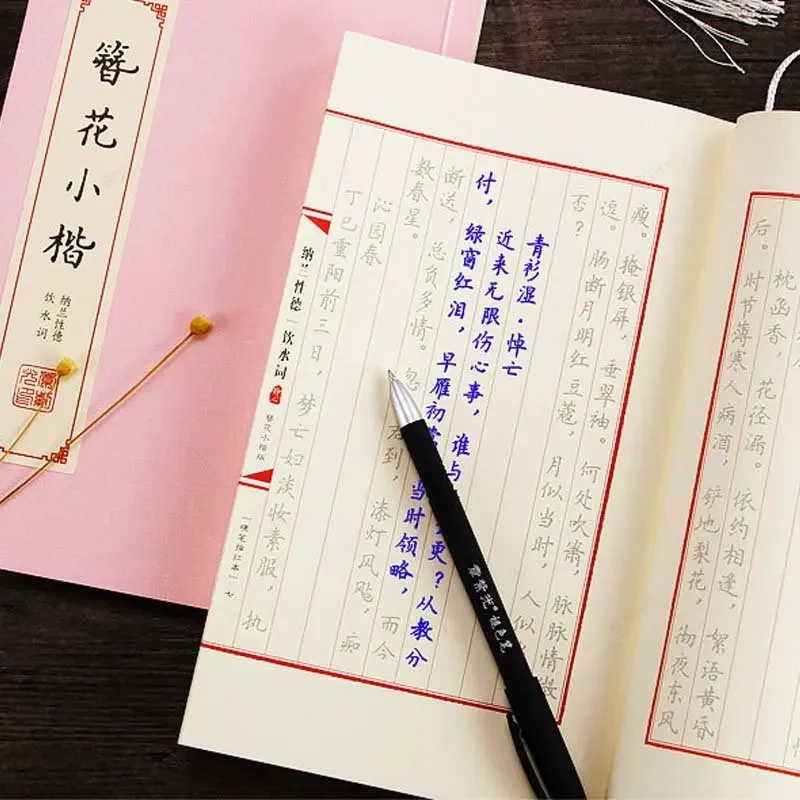 簪花小楷
纳兰性德
饮水词
枕函香，花径漏。依约相逢，絮语黄昏
后。时节薄寒人病酒，铲地梨花，彻夜东风
瘦。掩银屏，垂翠袖。何处吹箫，脉脉情微
逗。肠断月明红豆蔻，月似当时，人似
否？
青衫湿·悼亡
近来无限伤心事，谁与更？从教分
付，绿窗红泪，早雁初当时领略，而今
断送，总负多情。忽到，漆灯风飐，痴
数春星。
沁园春
丁巳重阳前三日，梦亡妇淡妆素服，执
纳兰性德｜饮水词
簪花小楷版
「硬笔描红本」七
褪色笔